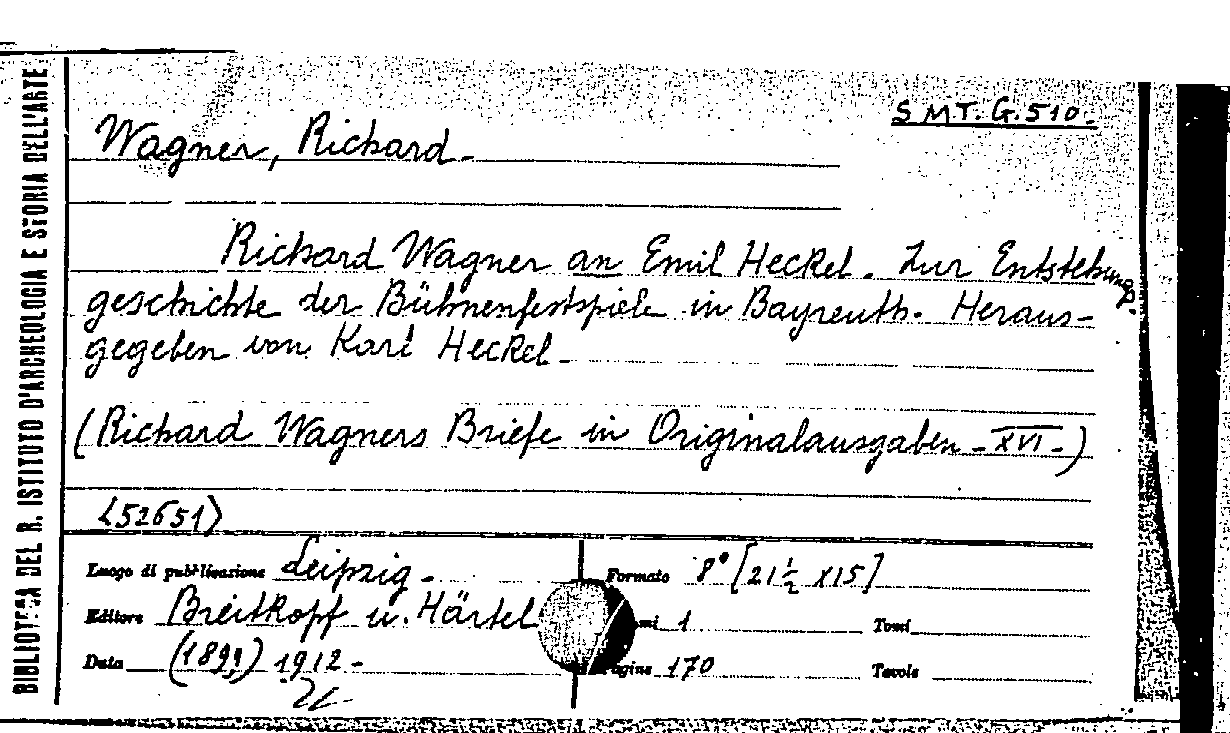 BIBLIOTECA DEL R. ISTITUTO D'ARCHEOLOGIA E STORIA DELL'ARTE
S M.T. G. 510.
Wagner, Richard.
Richard Wagner an Emil Heckel. Zur Entstehungs
geschichte der Bühnenfestspiele in Bayreuth. Heraus-
gegeben von Karl Heckel.
(Richard Wagners Briefe in Originalausgaben - XVI -)
<52651>
Luogo di pubblicazione Leipzig. Formato 8° [21½ x15]
Editore Breitkopf u. Härtel mi 1 Tomi
Data (1899) 1912 - agine 170 Tavole